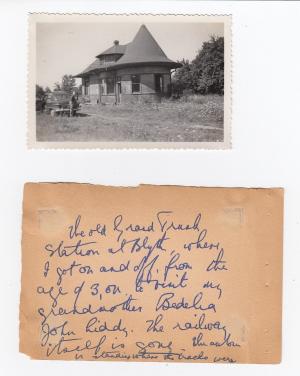 The old Grand Trunk
Station at Blyth where
I got on and off, from the
age of 3, on to visit my
grandmother Bedelia
John Liddy. The railway
itself is gone. The autom
is standing where the tracks were